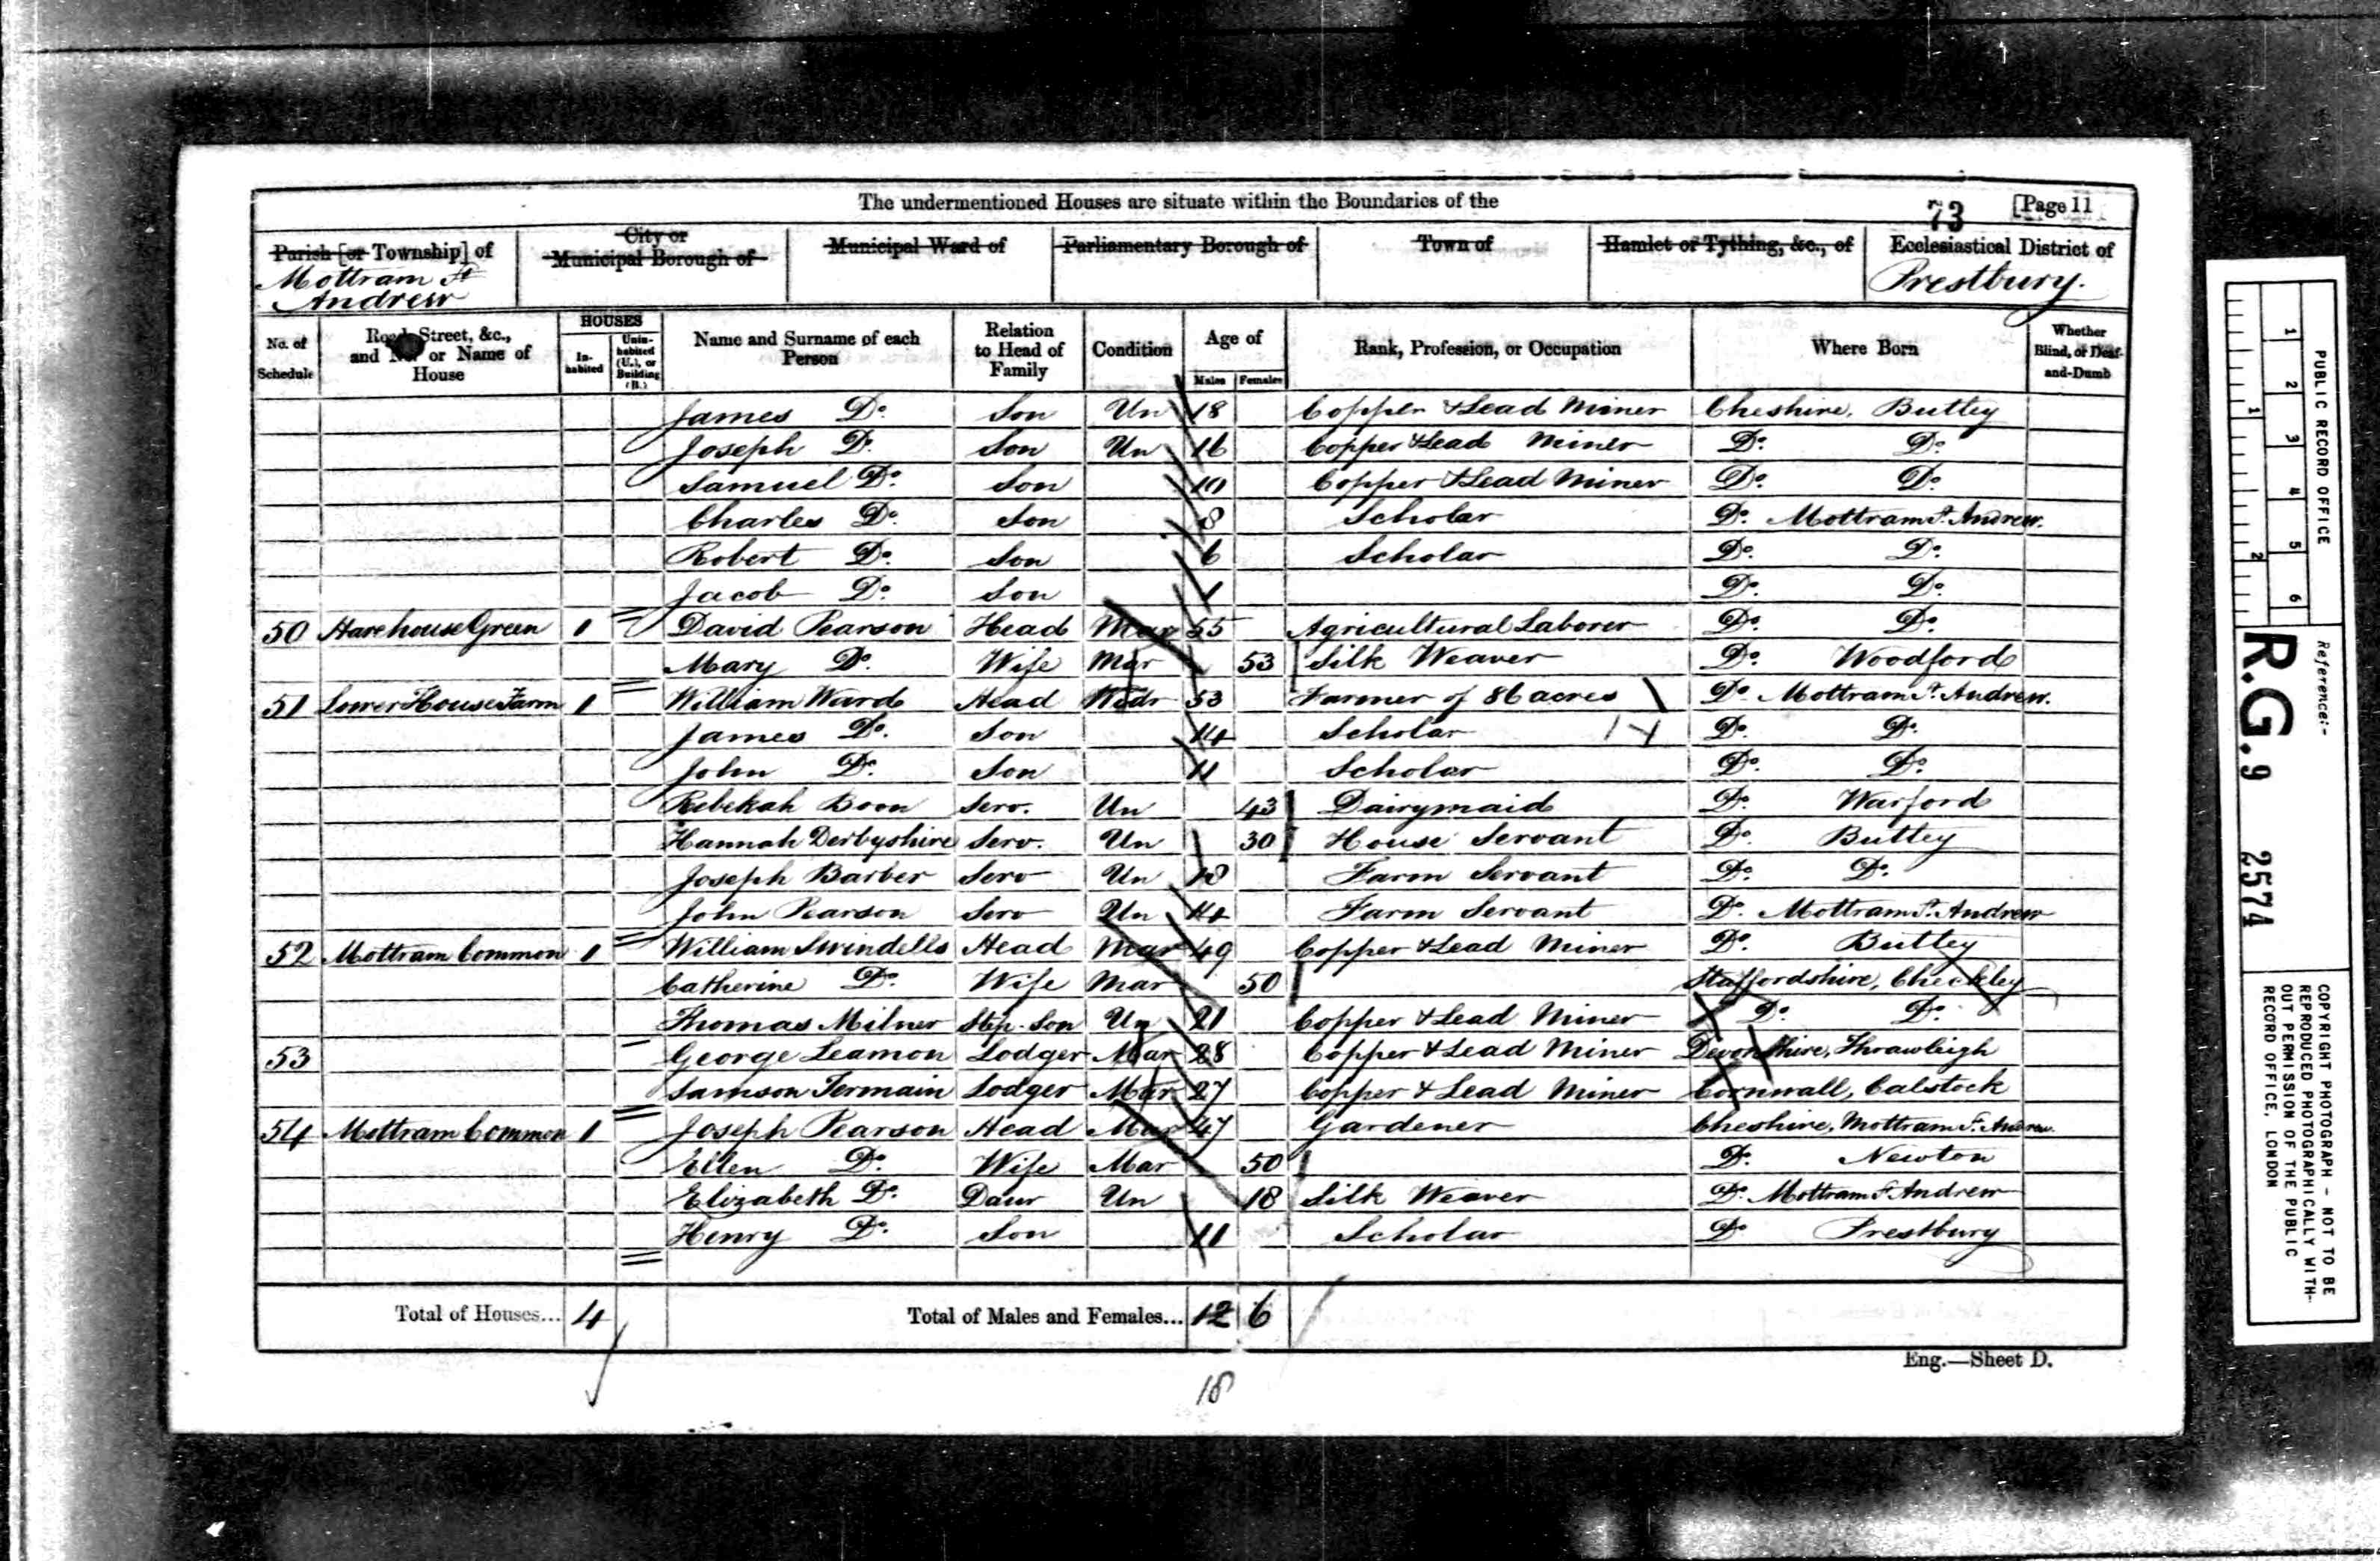 The undermentioned Houses are situate within the Boundaries of the
73 [Page 11
Parish [or Township] of
Mottram St
Andrew
City or
Municipal Borough of
Municipal Ward of
Parliamentary Borough of
Town of
Hamlet or Tything, &c., of
Ecclesiastical District of
Prestbury.
No. of Schedule
Road, Street, &c., and No. or Name of House
HOUSES
Inhabited
Uninhabited (U.), or Building (B.)
Name and Surname of each Person
Relation to Head of Family
Condition
Age of
Males Females
Rank, Profession, or Occupation
Where Born
Whether Blind, or Deaf-and-Dumb
James Do. Son Un 18 Copper & Lead Miner Cheshire, Butley
Joseph Do. Son Un 16 Copper & Lead Miner Do. Do.
Samuel Do. Son 10 Copper & Lead Miner Do. Do.
Charles Do. Son 8 Scholar Do. Mottram St. Andrew.
Robert Do. Son 6 Scholar Do. Do.
Jacob Do. Son 1 Do. Do.
50 Harehouse Green 1 David Pearson Head Mar 55 Agricultural Laborer Do. Do.
Mary Do. Wife Mar 53 Silk Weaver Do. Woodford
51 Lower House Farm 1 William Ward Head Widr 53 Farmer of 86 acres Do. Mottram St. Andrew.
James Do. Son 14 Scholar Do. Do.
John Do. Son 11 Scholar Do. Do.
Rebekah Boon Serv. Un 43 Dairymaid Do. Warford
Hannah Derbyshire Serv. Un 30 House Servant Do. Butley
Joseph Barber Serv Un 18 Farm Servant Do. Do.
John Pearson Serv Un 14 Farm Servant Do. Mottram St. Andrew
52 Mottram Common 1 William Swindells Head Mar 49 Copper & Lead Miner Do. Butley
Catherine Do. Wife Mar 50 Staffordshire, Checkley
Thomas Milner Step-Son Un 21 Copper & Lead Miner Do. Do.
53 George Leamon Lodger Mar 28 Copper & Lead Miner Devonshire, Thrawleigh
Samson Jermain Lodger Mar 27 Copper & Lead Miner Cornwall, Calstock
54 Mottram Common 1 Joseph Pearson Head Mar 47 Gardener Cheshire, Mottram St. Andrew.
Ellen Do. Wife Mar 50 Do. Newton
Elizabeth Do. Daur Un 18 Silk Weaver Do. Mottram St Andrew
Henry Do. Son 11 Scholar Do Prestbury
Total of Houses... 4
Total of Males and Females... 12 6
18
Eng.—Sheet D.
PUBLIC RECORD OFFICE
1 2 3 4 5 6
1 2
Reference:-
R.G. 9 2574
COPYRIGHT PHOTOGRAPH - NOT TO BE
REPRODUCED PHOTOGRAPHICALLY WITH-
OUT PERMISSION OF THE PUBLIC
RECORD OFFICE, LONDON